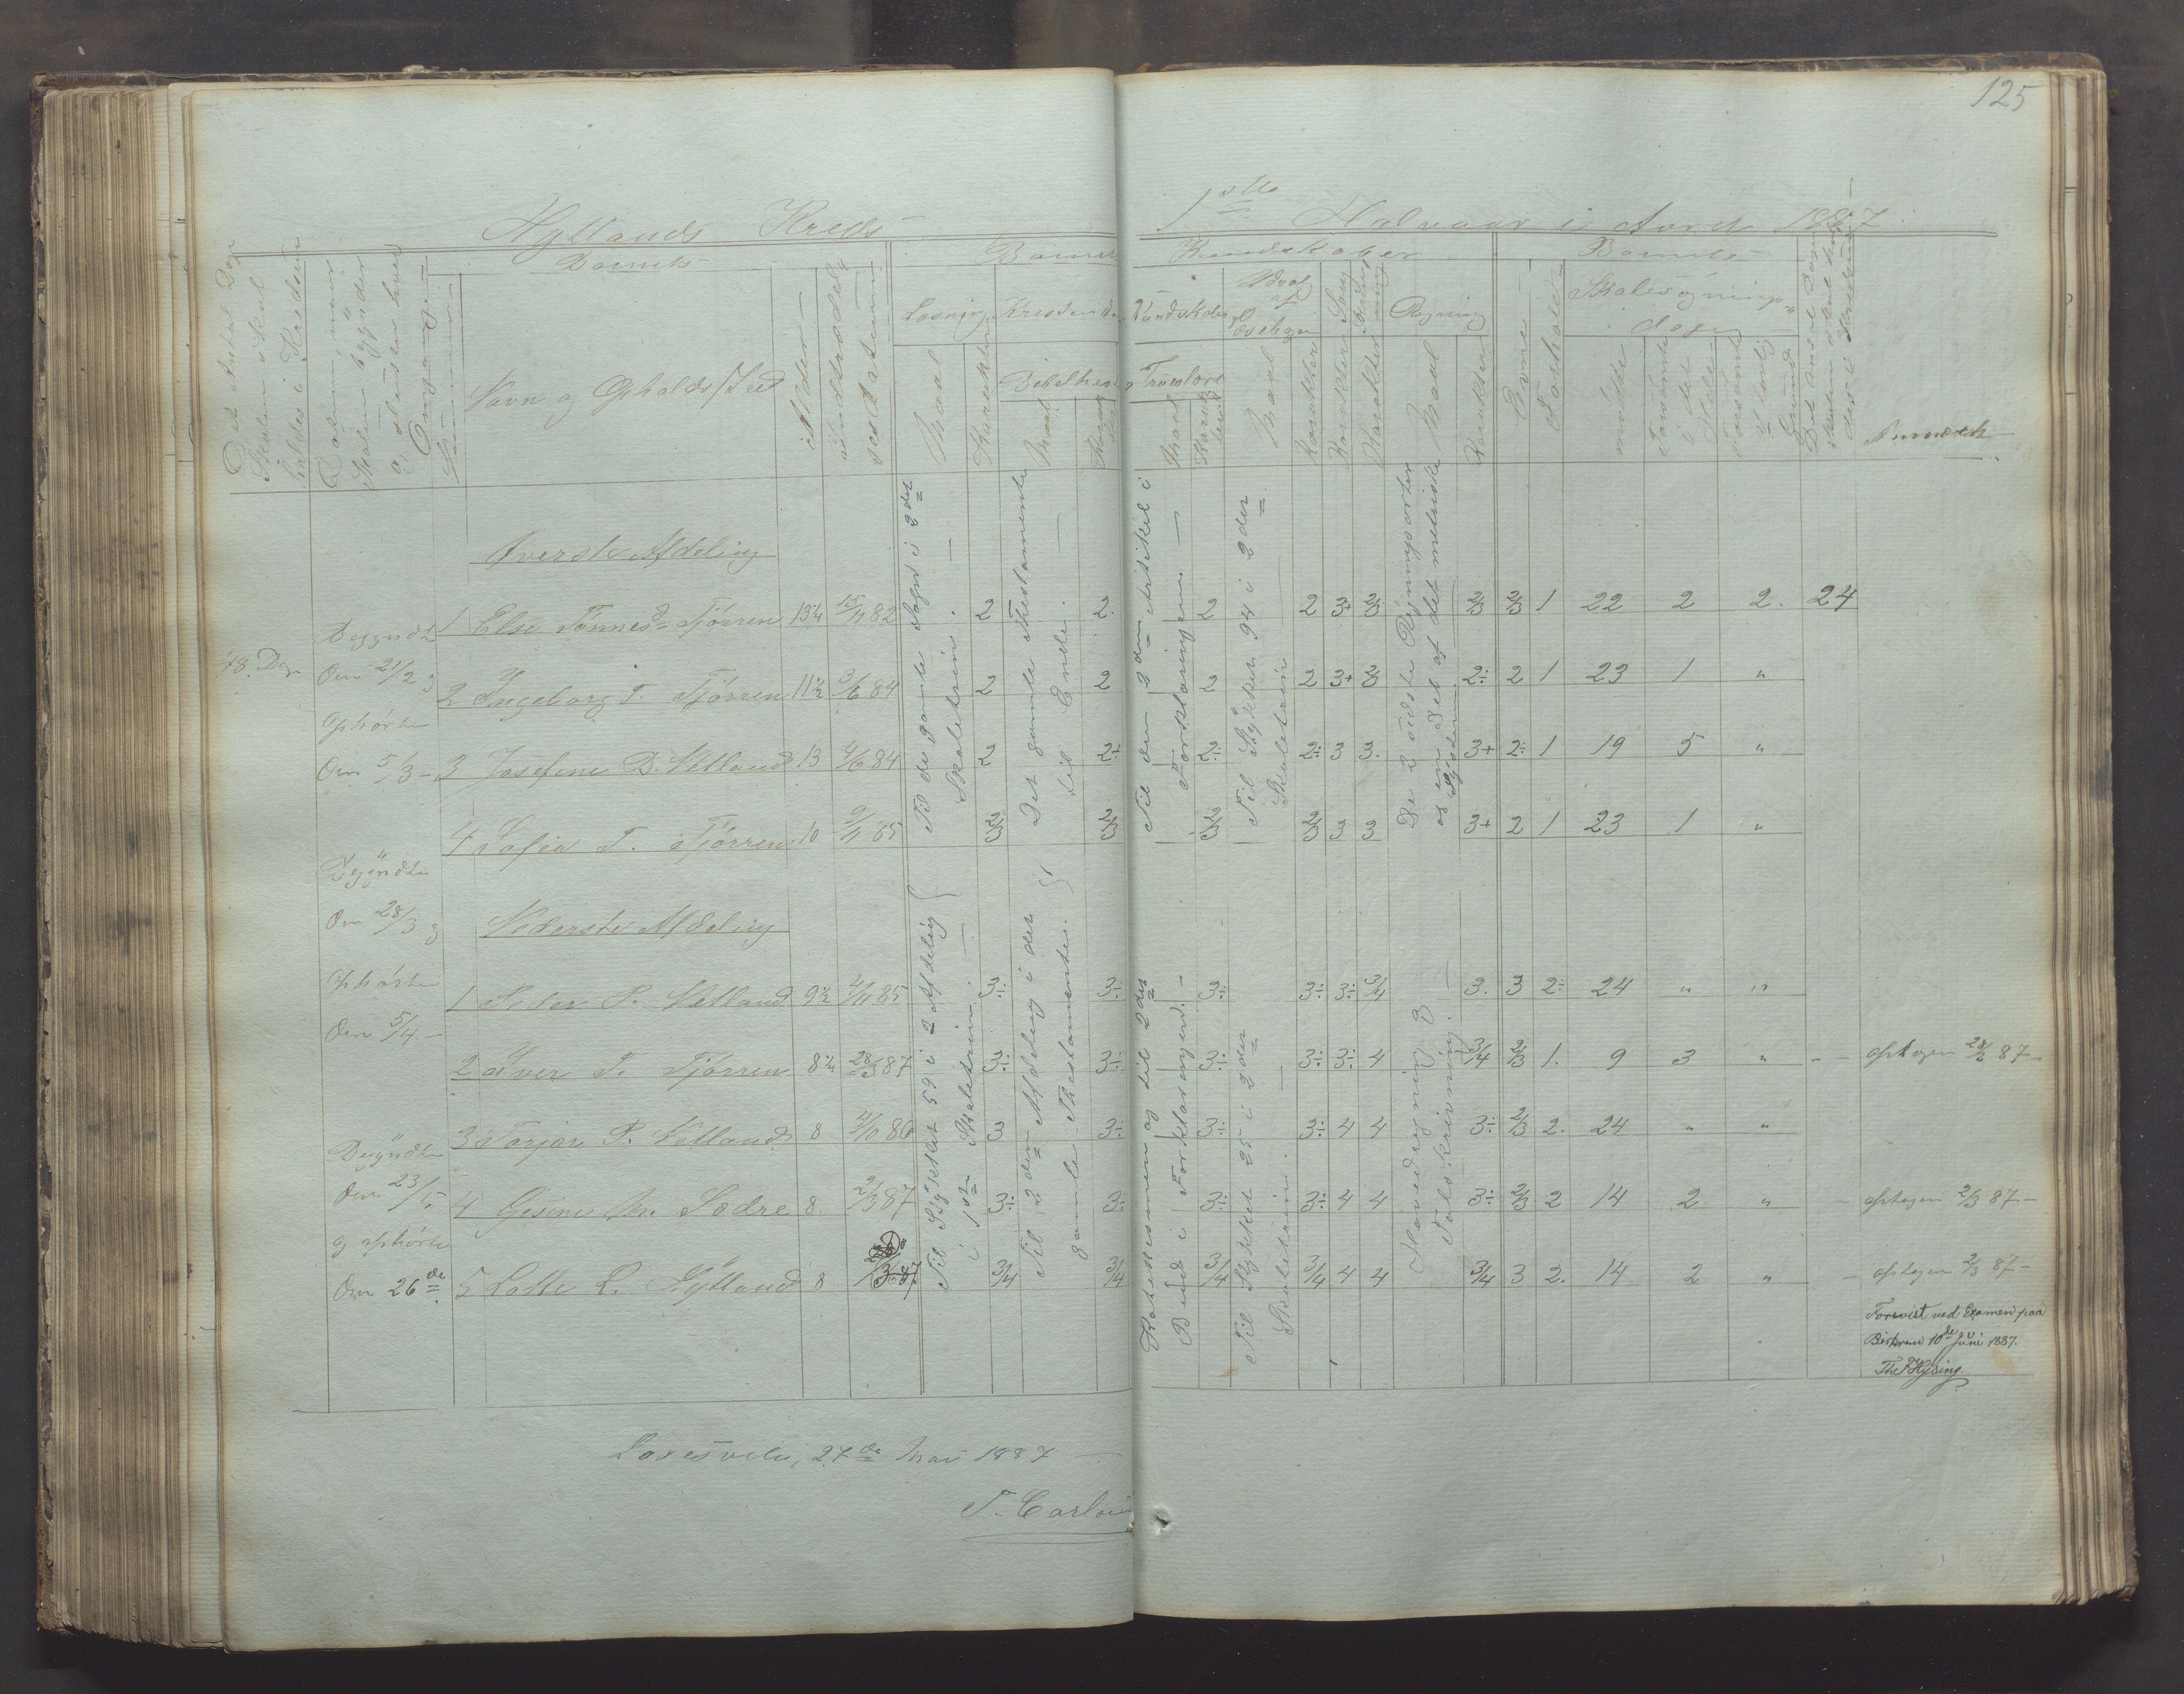 125
Hyllands Kreds
1ste Halvaar i Aaret 1887
Det Antal Dage Skolen skal holdes i Kredsen
Datum, naar Skolen begynder og slutter hver Omgang
Nummer
Barnets
Navn og Opholds/Sted
Alder
Indtrædelsesdatum
Barnets Kundskaber
Læsning
Maal
Karakter
Kristendomskundskab
Bibelhistorie
Maal
Karakter
Troeslære
Maal
Karakter
Udvalg af Læsebogen
Maal
Karakter
Sang
Karakter
Skrivning
Karakter
Regning
Maal
Karakter
Evne
Forhold
Barnets
Skolesøgningsdage
mødte
forsømte i det Hele
forsømte af lovlig Grund
Det Antal Dage Skolen er holdt i Kredsen
Anmærk
Øverste Afdeling
48 Dage
Begyndte
Den 21/2 og
ophørte
Den 5/3 -
1 Else Tønnesd. Tjørren 13 1/4 15/11 82 2 2. 2 2 3+ 2/3 2/3 2/3 1 22 2 2. 24
2 Ingeborg T. Tjørren 11 1/2 3/6 84 2 2 2 2 3+ 3 2÷ 2 1 23 1 "
3 Josefine D. Netland 13 4/6 84 2 2÷ 2÷ 2÷ 3 3. 3+ 2÷ 1 19 5 "
4 Sofia T. Tjørren 10 9/11 85 2/3 2/3 2/3 2/3 3 3 3+ 2 1 23 1 "
Til de gamle Sagn i 3det Skoletrin.
Det gamle Testamente til Ende.
Til den 3den Artikel i Forklaringen.
Til Stykket 94 i 2det Skoletrin
De 2 sidste Regningsarter og en Del af det metriske System.
Begyndte
Den 28/3 og
ophørte
Den 5/4 -
Nederste Afdeling
1 Peder P. Netland 9 1/2 4/11 85 3÷ 3÷ 3÷ 3÷ 3÷ 3/4 3. 3 2÷ 24 " "
2 Iver T. Tjørren 8 1/4 28/3 87 3÷ 3÷ 3÷ 3÷ 3÷ 4 3/4 2/3 1. 9 3 " - - optagen 28/3 87 -
3 Torjer P. Netland 8 4/10 86 3 3÷ 3÷ 3÷ 4 4 3÷ 2/3 2. 24 " "
Begyndte
Den 23/5
og ophørte
Den 26de
4 Gesine M. Sædre 8. 2/3 87 3÷ 3÷ 3÷ 3÷ 4 4 3÷ 2/3 2 14 2 " - optagen 2/3 87 -
5 Lotte L. Hylland 8 2/3 87 3/4 3/4 3/4 3/4 4 4 3/4 3 2. 14 2 " - optagen 2/3 87 -
Til Stykket 59 i 2 Afdeling i 1ste Skoletrin.
Til 2den Afdeling i det gamle Testamente.
Katekismen og til 2det Bud i Forklaringen.
Til Stykket 25 i 2det Skoletrin.
Hovedregning og Talskrivning.
Forevist ved Examen paa
Birkrem 10de Juni 1887.
Th. Hysing.
27de Mai 1887
T. Carlsen